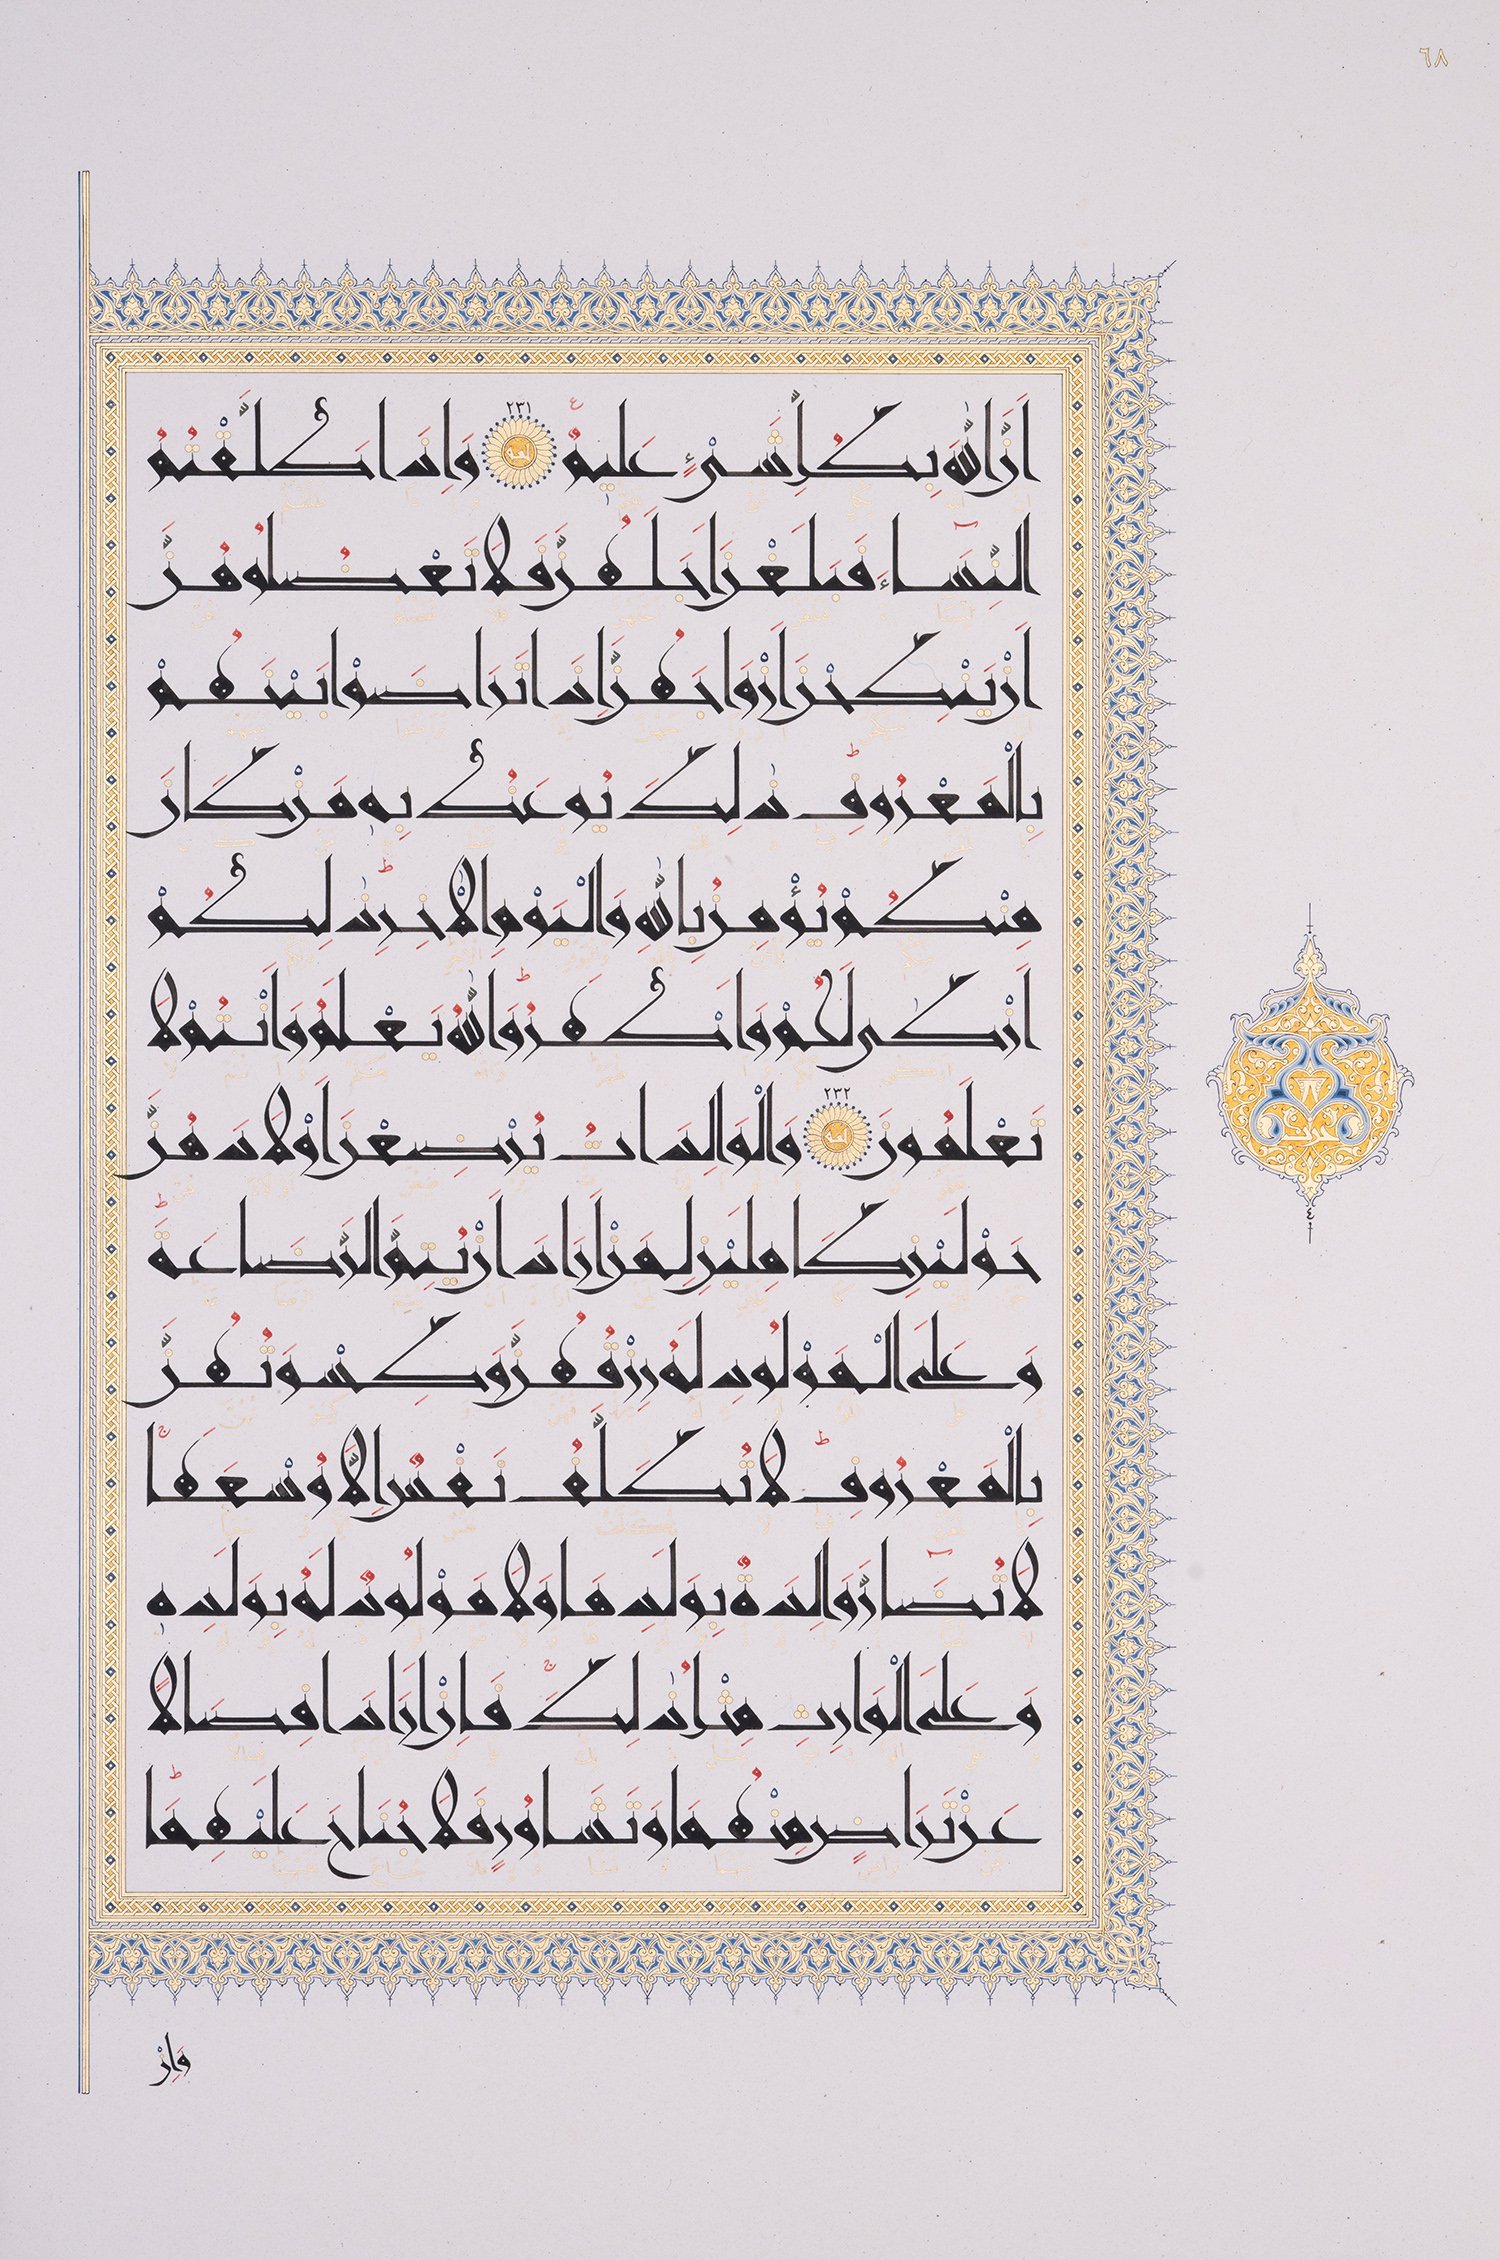 ٦٨
اَنَّ اللّٰهَ بِكُلِّ شَیْءٍ عَلِیْمٌ ٢٣١ وَاِذَا طَلَّقْتُمُ
النِّسَآءَ فَبَلَغْنَ اَجَلَهُنَّ فَلَا تَعْضُلُوْهُنَّ
اَنْ یَّنْكِحْنَ اَزْوَاجَهُنَّ اِذَا تَرَاضَوْا بَیْنَهُمْ
بِالْمَعْرُوْفِ ؕ ذٰلِكَ یُوْعَظُ بِهٖ مَنْ كَانَ
مِنْكُمْ یُؤْمِنُ بِاللّٰهِ وَالْیَوْمِ الْاٰخِرِ ؕ ذٰلِكُمْ
اَزْكٰی لَكُمْ وَاَطْهَرُ ؕ وَاللّٰهُ یَعْلَمُ وَاَنْتُمْ لَا
تَعْلَمُوْنَ ٢٣٢ وَالْوَالِدَاتُ یُرْضِعْنَ اَوْلَادَهُنَّ
حَوْلَیْنِ كَامِلَیْنِ لِمَنْ اَرَادَ اَنْ یُّتِمَّ الرَّضَاعَةَ ؕ
وَعَلَی الْمَوْلُوْدِ لَهٗ رِزْقُهُنَّ وَكِسْوَتُهُنَّ
بِالْمَعْرُوْفِ ؕ لَا تُكَلَّفُ نَفْسٌ اِلَّا وُسْعَهَا ۚ
لَا تُضَآرَّ وَالِدَةٌۢ بِوَلَدِهَا وَلَا مَوْلُوْدٌ لَّهٗ بِوَلَدِهٖ
وَعَلَی الْوَارِثِ مِثْلُ ذٰلِكَ ۚ فَاِنْ اَرَادَا فِصَالًا
عَنْ تَرَاضٍ مِّنْهُمَا وَتَشَاوُرٍ فَلَا جُنَاحَ عَلَیْهِمَا ؕ
وَاِنْ